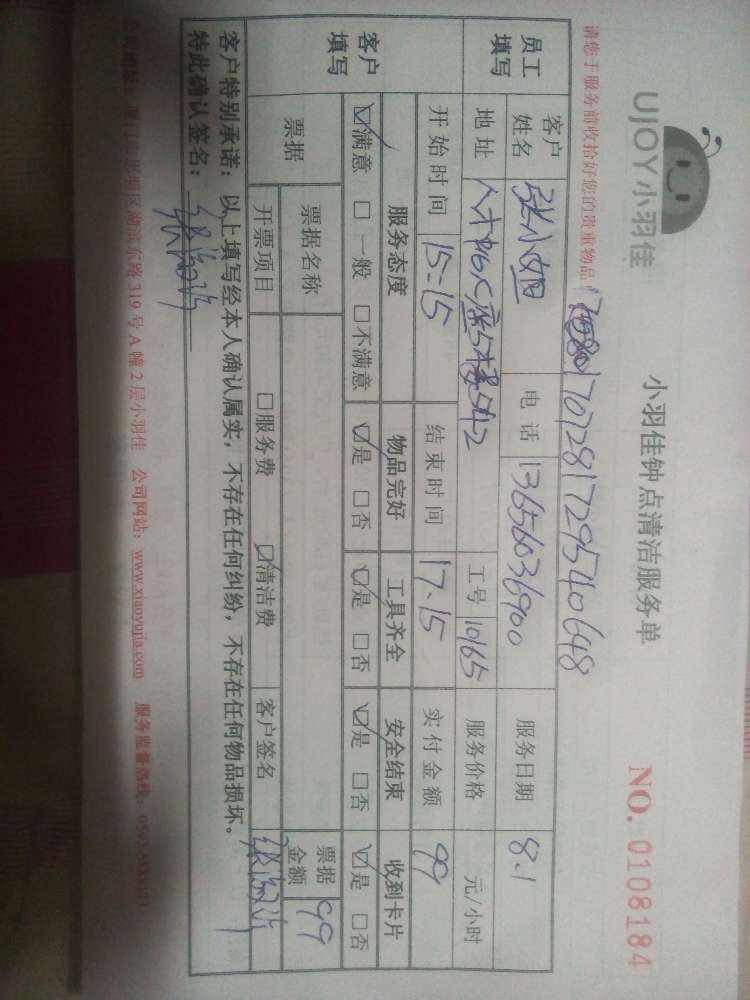 UJOY小羽佳
小羽佳钟点清洁服务单
NO. 0108184
请您于服务前收拾好您的贵重物品
170728172954064８
员工填写
客户姓名 张小姐 电话 13656036900 服务日期 8.1
地址 工号 10165 服务价格 元/小时
开始时间 15-15 结束时间 17-15 实付金额 99
客户填写
服务态度 物品完好 工具齐全 安全结束 收到卡片
☑满意 □一般 □不满意 ☑是 □否 ☑是 □否 ☑是 □否 ☑是 □否
票据 票据名称 票据金额 99
开票项目 □服务费 ☑清洁费 客户签名
客户特别承诺：以上填写经本人确认属实，不存在任何纠纷，不存在任何物品损坏。
特此确认签名：
厦门市思明区湖滨东路319号A幢2层小羽佳 公司网站：www.xiaoyujia.com 服务监督热线：